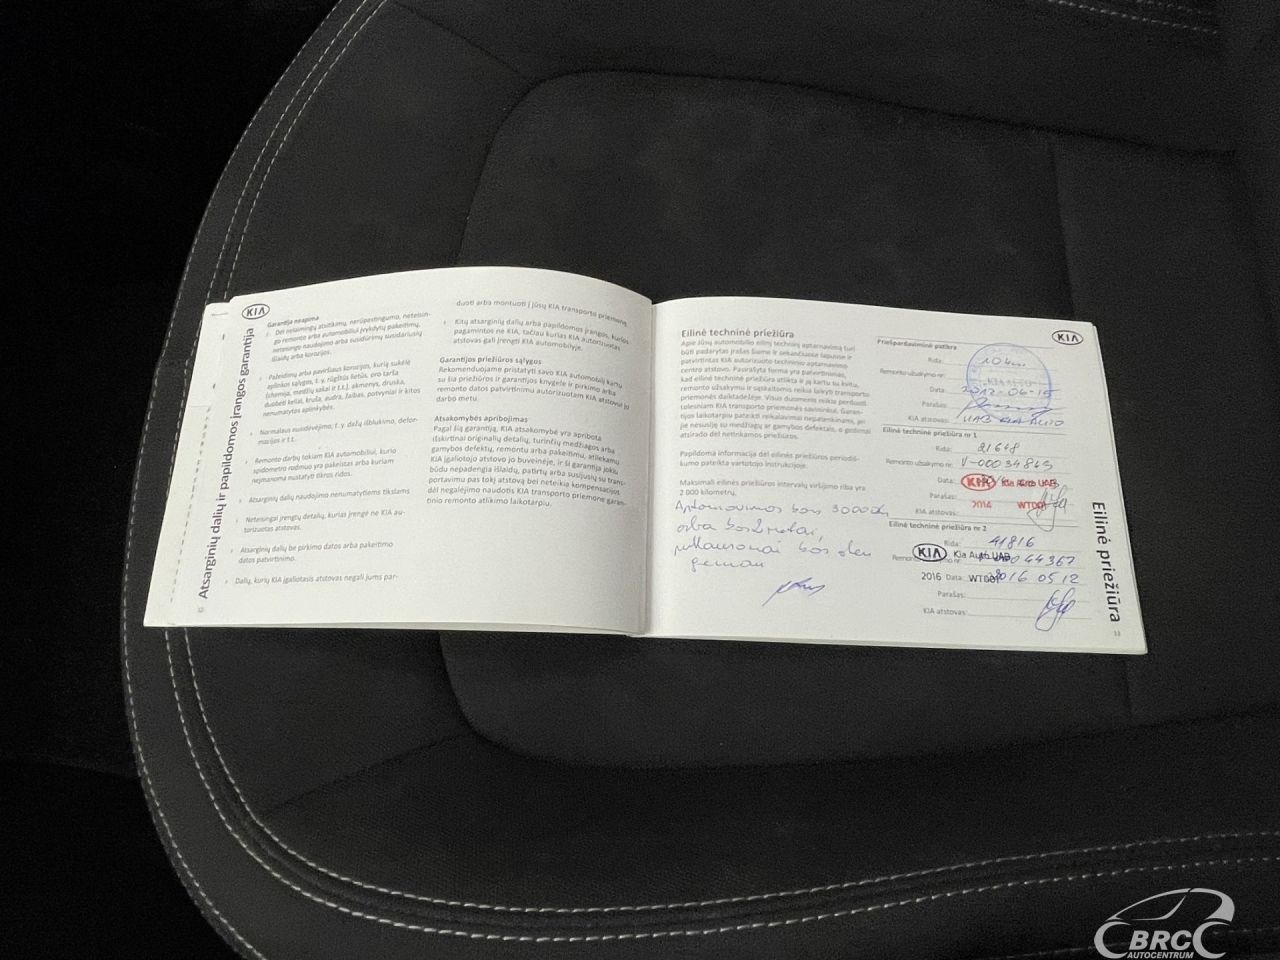 KIA
Atsarginių dalių ir papildomos įrangos garantija
Garantija neapima
Dėl nelaimingų atsitikimų, nerūpestingumo, neteisin-
go remonto arba automobiliui įvykdytų pakeitimų,
neteisingo naudojimo arba susidūrimų susidariusių
išlaidų arba korozijos.
Pažeidimų arba paviršiaus korozijos, kurią sukėlė
aplinkos sąlygos, t. y. rūgštūs lietūs, oro tarša
(chemija, medžių sakai ir t.t.), akmenys, druska,
duobėti keliai, kruša, audra, žaibas, potvyniai ir kitos
nenumatytos aplinkybės.
Normalaus nusidėvėjimo, t. y. dažų išblukimo, defor-
macijos ir t.t.
Remonto darbų tokiam KIA automobiliui, kurio
spidometro rodmuo yra pakeistas arba kuriam
neįmanoma nustatyti tikros ridos.
Atsarginių dalių naudojimo nenumatytiems tikslams
Neteisingai įrengtų detalių, kurias įrengė ne KIA au-
torizuotas atstovas.
Atsarginių dalių be pirkimo datos arba pakeitimo
datos patvirtinimo.
Dalių, kurių KIA įgaliotasis atstovas negali jums par-
duoti arba montuoti į jūsų KIA transporto priemonę.
Kitų atsarginių dalių arba papildomos įrangos, kurios
pagamintos ne KIA, tačiau kurias KIA autorizuotas
atstovas gali įrengti KIA automobilyje.
Garantijos priežiūros sąlygos
Rekomenduojame pristatyti savo KIA automobilį kartu
su šia priežiūros ir garantijos knygele ir pirkimo arba
remonto datos patvirtinimu autorizuotam KIA atstovui jo
darbo metu.
Atsakomybės apribojimas
Pagal šią garantiją, KIA atsakomybė yra apribota
išskirtinai originalių detalių, turinčių medžiagos arba
gamybos defektų, remontu arba pakeitimu, atliekamu
KIA įgaliotojo atstovo jo buveinėje, ir ši garantija jokiu
būdu nepadengia išlaidų, patirtų arba susijusių su trans-
portavimu pas tokį atstovą bei neteikia kompensacijos
dėl negalėjimo naudotis KIA transporto priemone garan-
tinio remonto atlikimo laikotarpiu.
12
KIA
Eilinė priežiūra
Eilinė techninė priežiūra
Apie Jūsų automobilio eilinį techninį aptarnavimą turi
būti padarytas įrašas šiame ir sekančiuose lapuose ir
patvirtintas KIA autorizuoto techninio aptarnavimo
centro atstovo. Pasirašyta forma yra patvirtinimas,
kad eilinė techninė priežiūra atlikta ir ją kartu su kvitu,
remonto užsakymu ir sąskaitomis reikia laikyti transporto
priemonės daiktadėžėje. Visus duomenis reikia perduoti
tolesniam KIA transporto priemonės savininkui. Garan-
tijos laikotarpiu pateikti reikalavimai nepatenkinami, jei
jie nesusiję su medžiagų ar gamybos defektais, o greičiau
atsirado dėl netinkamos priežiūros.
Papildoma informacija dėl eilinės priežiūros periodiš-
kumo pateikta vartotojo instrukcijoje.
Maksimali eilinės priežiūros intervalų viršijimo riba yra
2 000 kilometrų.
Aptarnavimas kas 30000km
arba kas 2 metai,
Priešpardaviminė patikra
Rida: 10 km.
Remonto užsakymo nr:
Data: 2012-06-15
Parašas:
KIA atstovas: UAB KIA AUTO
Eilinė techninė priežiūra nr 1
Rida: 21648
Remonto užsakymo nr. V-00034845
Data: KIA Kia Auto UAB
Parašas: 2014 WT001
Eilinė techninė priežiūra nr 2
Rida: 41816
KIA Kia Auto UAB 00044367
2016 Data: WT001 2016 05 12
Parašas:
KIA atstovas:
13
BRC
AUTOCENTRUM